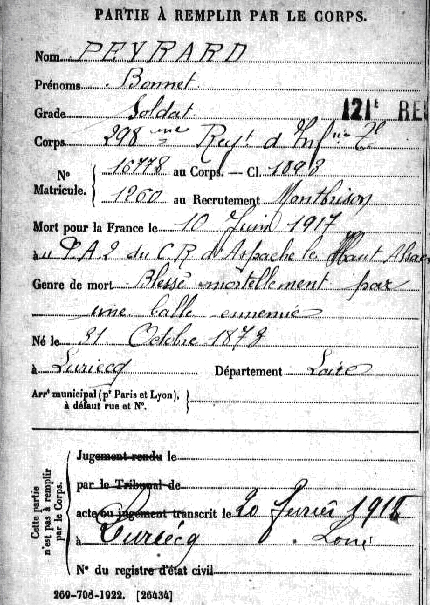 PARTIE À REMPLIR PAR LE CORPS.
Nom PEYRARD
Prénoms Bonnet
Grade Soldat
121e RE
Corps 298 me Regt d'Infie
No Matricule. 16778 au Corps. — Cl. 1898
1260 au Recrutement Montbrison
Mort pour la France le 10 Juin 1917
à u P.A 2 du C R d'Aspach le Haut Alsace
Genre de mort Blessé mortellement par
une balle ennemie
Né le 31 Octobre 1878
à Luriecq Département Loire
Arrt municipal (pr Paris et Lyon),
à défaut rue et No.
Cette partie n'est pas à remplir par le Corps.
Jugement rendu le
par le Tribunal de
acte ou jugement transcrit le 20 février 1918
à Luriecq Loire
No du registre d'état civil
269-708-1922. [26434]